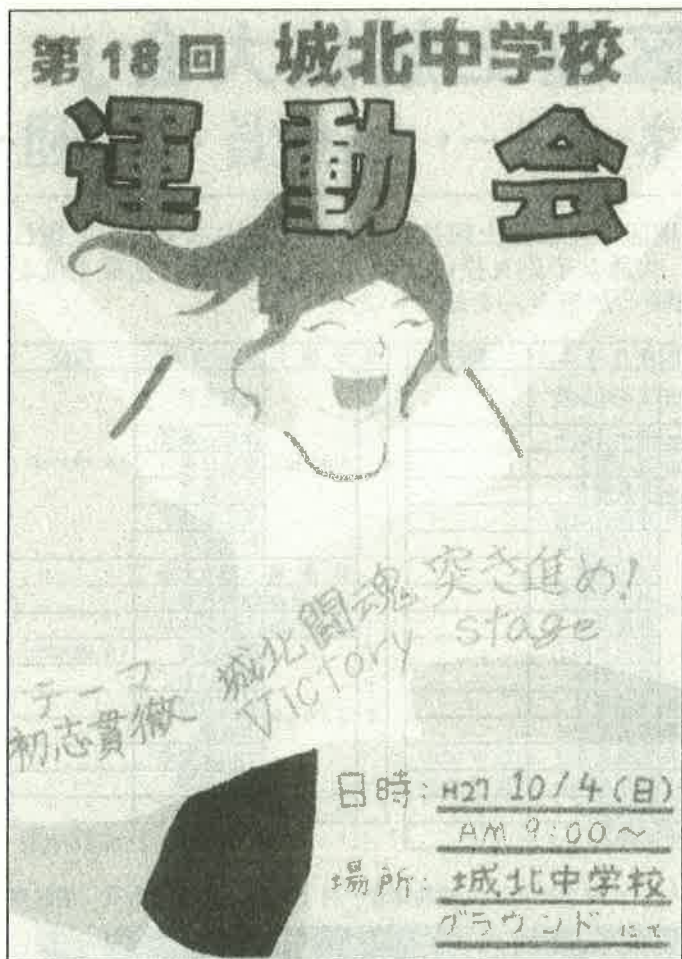 第18回 城北中学校
運動会
テーマ
初志貫徹 城北闘魂 突き進め!
Victory stage
日時: H27 10/4(日)
AM 9:00〜
場所: 城北中学校
グラウンドにて